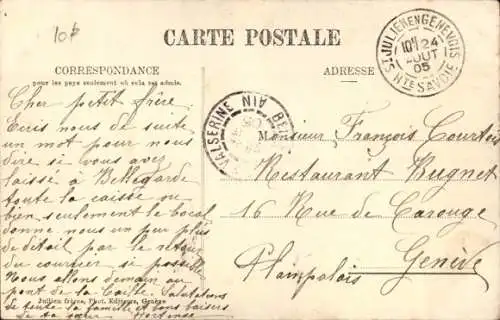 10f
CARTE POSTALE
CORRESPONDANCE
pour les pays seulement où cela est admis.
ADRESSE
ST JULIEN EN GENEVOIS
10H 24
AOUT
05
HTE SAVOIE
VALSERINE AIN
Cher petit frère
Ecris nous de suite
un mot pour nous
dire si vous avez
laissé à Bellegarde
toute la caisse ou
bien seulement le bocal
donne nous un peu plus
de détail par le retour
du courrier si possible
Nous allons demain au
pont de la Caille Salutations
de toute la famille et bons baisers
de ta sœur Hortense
Jullien frères, Phot. Editeurs, Genève
Monsieur François Courtois
Restaurant Bugnet
16 Rue de Carouge
Genève
Plainpalais